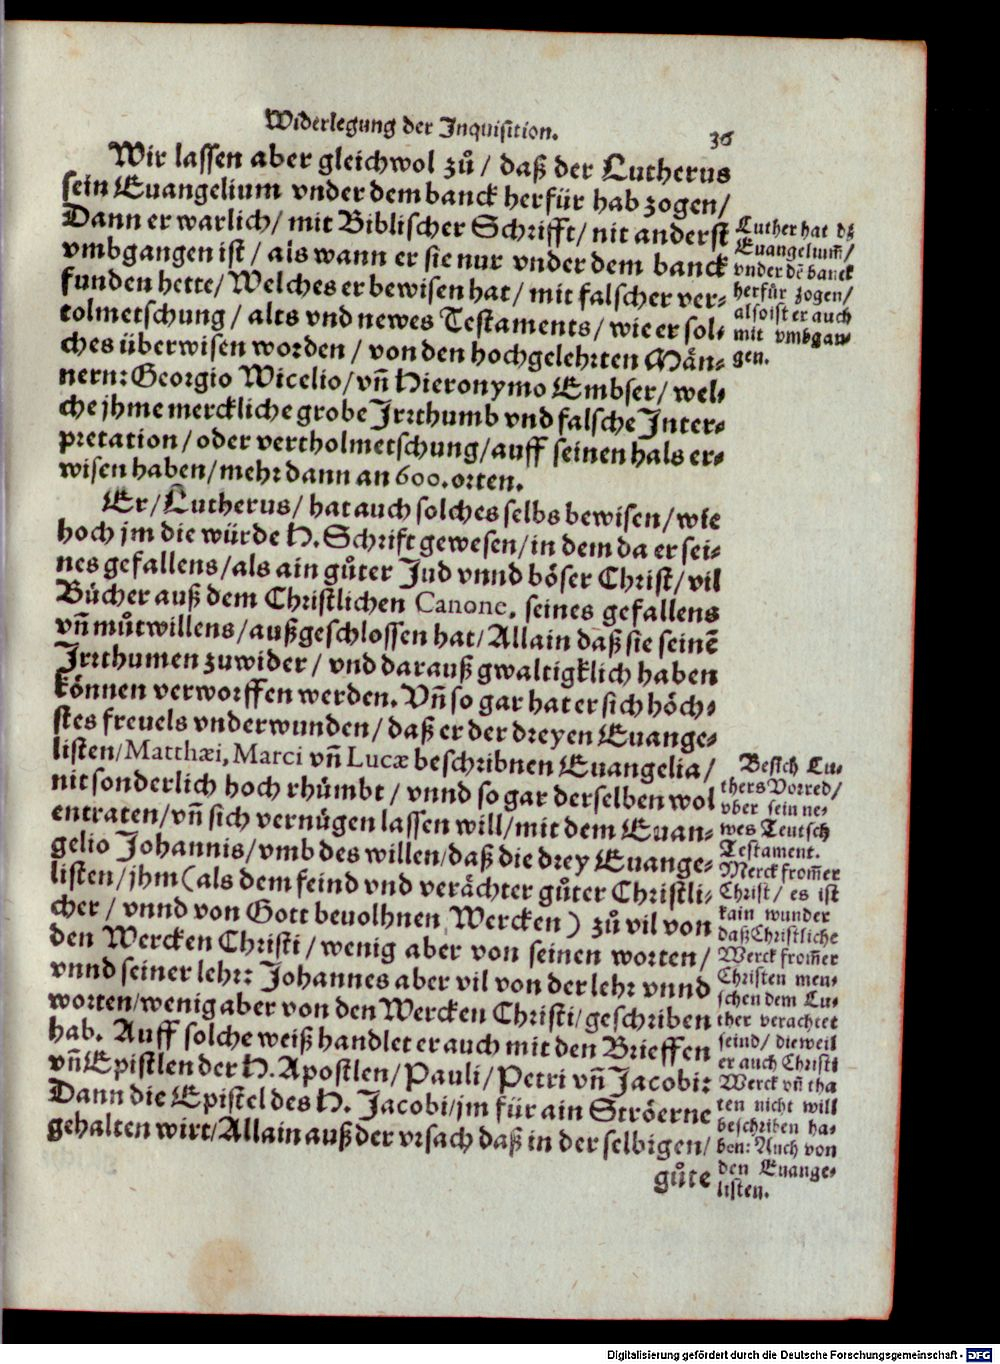 Widerlegung der Inquisition. 36
Wir lassen aber gleichwol zů / daß der Lutherus
sein Euangelium vnder dem banck herfür hab zogen /
Dann er warlich / mit Biblischer Schrifft / nit anderst
vmbgangen ist / als wann er sie nur vnder dem banck
funden hette / Welches er bewisen hat / mit falscher ver-
tolmetschung / alts vnd newes Testaments / wie er sol-
ches überwisen worden / von den hochgelehrten Män-
nern: Georgio Wicelio / vñ Hieronymo Embser / wel-
che jhme merckliche grobe Irrthumb vnd falsche Inter-
pretation / oder vertholmetschung / auff seinen hals er-
wisen haben / mehr dann an 600. orten.
Er / Lutherus / hat auch solches selbs bewisen / wie
hoch jm die würde H. Schrift gewesen / in dem da er sei-
nes gefallens / als ain gůter Jud vnnd böser Christ / vil
Bücher auß dem Christlichen Canone, seines gefallens
vñ můtwillens / außgeschlossen hat / Allain daß sie seinẽ
Irrthumen zuwider / vnd darauß gwaltigklich haben
können verworffen werden. Vñ so gar hat er sich höch-
stes freuels vnderwunden / daß er der dreyen Euange-
listen / Matthæi, Marci vñ Lucæ beschribnen Euangelia /
nit sonderlich hoch rhümbt / vnnd so gar derselben wol
entraten / vñ sich vernügen lassen will / mit dem Euan-
gelio Johannis / vmb des willen / daß die drey Euange-
listen / jhm (als dem feind vnd verächter gůter Christli-
cher / vnnd von Gott beuolhnen Wercken) zů vil von
den Wercken Christi / wenig aber von seinen worten /
vnnd seiner lehr: Johannes aber vil von der lehr vnnd
worten / wenig aber von den Wercken Christi / geschriben
hab. Auff solche weiß handlet er auch mit den Brieffen
vñ Epistlen der H. Apostlen / Pauli / Petri vñ Jacobi:
Dann die Epistel des H. Jacobi / jm für ain Ströerne
gehalten wirt / Allain auß der vrsach daß in der selbigen /
gůte
Luther hat dz
Euangeliuм̃ /
vnder dẽ banck
herfür zogen /
also ist er auch
mit vmbgan-
gen.
Besich Lu-
thers Vorred /
vber sein ne-
wes Teutsch
Testament.
Merck from̃er
Christ / es ist
kain wunder
daß Christliche
Werck from̃er
Christen men-
schen dem Lu-
ther verachtet
seind / dieweil
er auch Christi
Werck vñ tha
ten nicht will
beschriben ha-
ben: Auch von
den Euange-
listen.
Digitalisierung gefördert durch die Deutsche Forschungsgemeinschaft - DFG